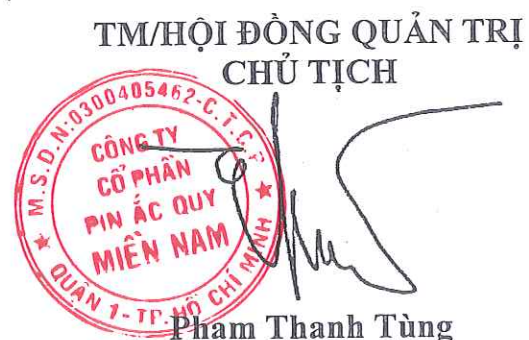 TM/HỘI ĐỒNG QUẢN TRỊ
CHỦ TỊCH
M.S.D.N:0300405462-C.T.C.P
CÔNG TY
CỔ PHẦN
PIN ẮC QUY
MIỀN NAM
QUẬN 1-TP.HỒ CHÍ MINH
Phạm Thanh Tùng